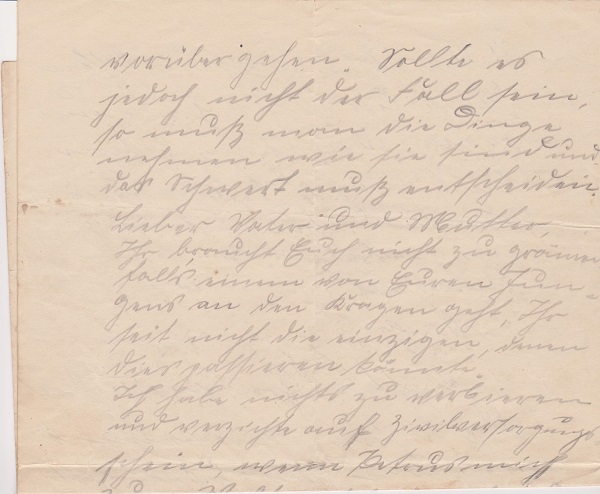 vorübergehen. Sollte es
jedoch nicht der Fall sein,
so muß man die Dinge
nehmen wie sie sind und
das Schwert muß entscheiden.
Lieber Vater und Mutter,
Ihr braucht Euch nicht zu grämen
falls einem von Euren Jun-
gens an den Kragen geht, Ihr
seit nicht die einzigen, denen
dies passieren könnte.
Ich habe nichts zu verlieren
und verzichte auf Zivilversorgungs
schein, wenn Petrus mich
zum